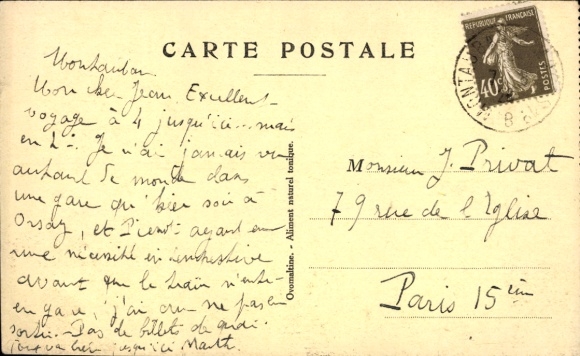 CARTE POSTALE
Montauban
Mon cher Jean. Excellent
voyage à 4 jusqu'ici... mais
en 2è. Je n'ai jamais vu
autant de monde dans
une gare qu'hier soir à
Orsay, et Pierrot ayant eu
une nécessité intempestive
avant que le train n'entre
en gare, j'ai cru ne pas en
sortir. Pas de billets de quai.
tout va bien jusqu'ici Marth.
Ovomaltine. - Aliment naturel tonique.
RÉPUBLIQUE FRANÇAISE
40c
POSTES
MONTAUBAN
Monsieur J. Privat
79 rue de l'Eglise
Paris 15ème